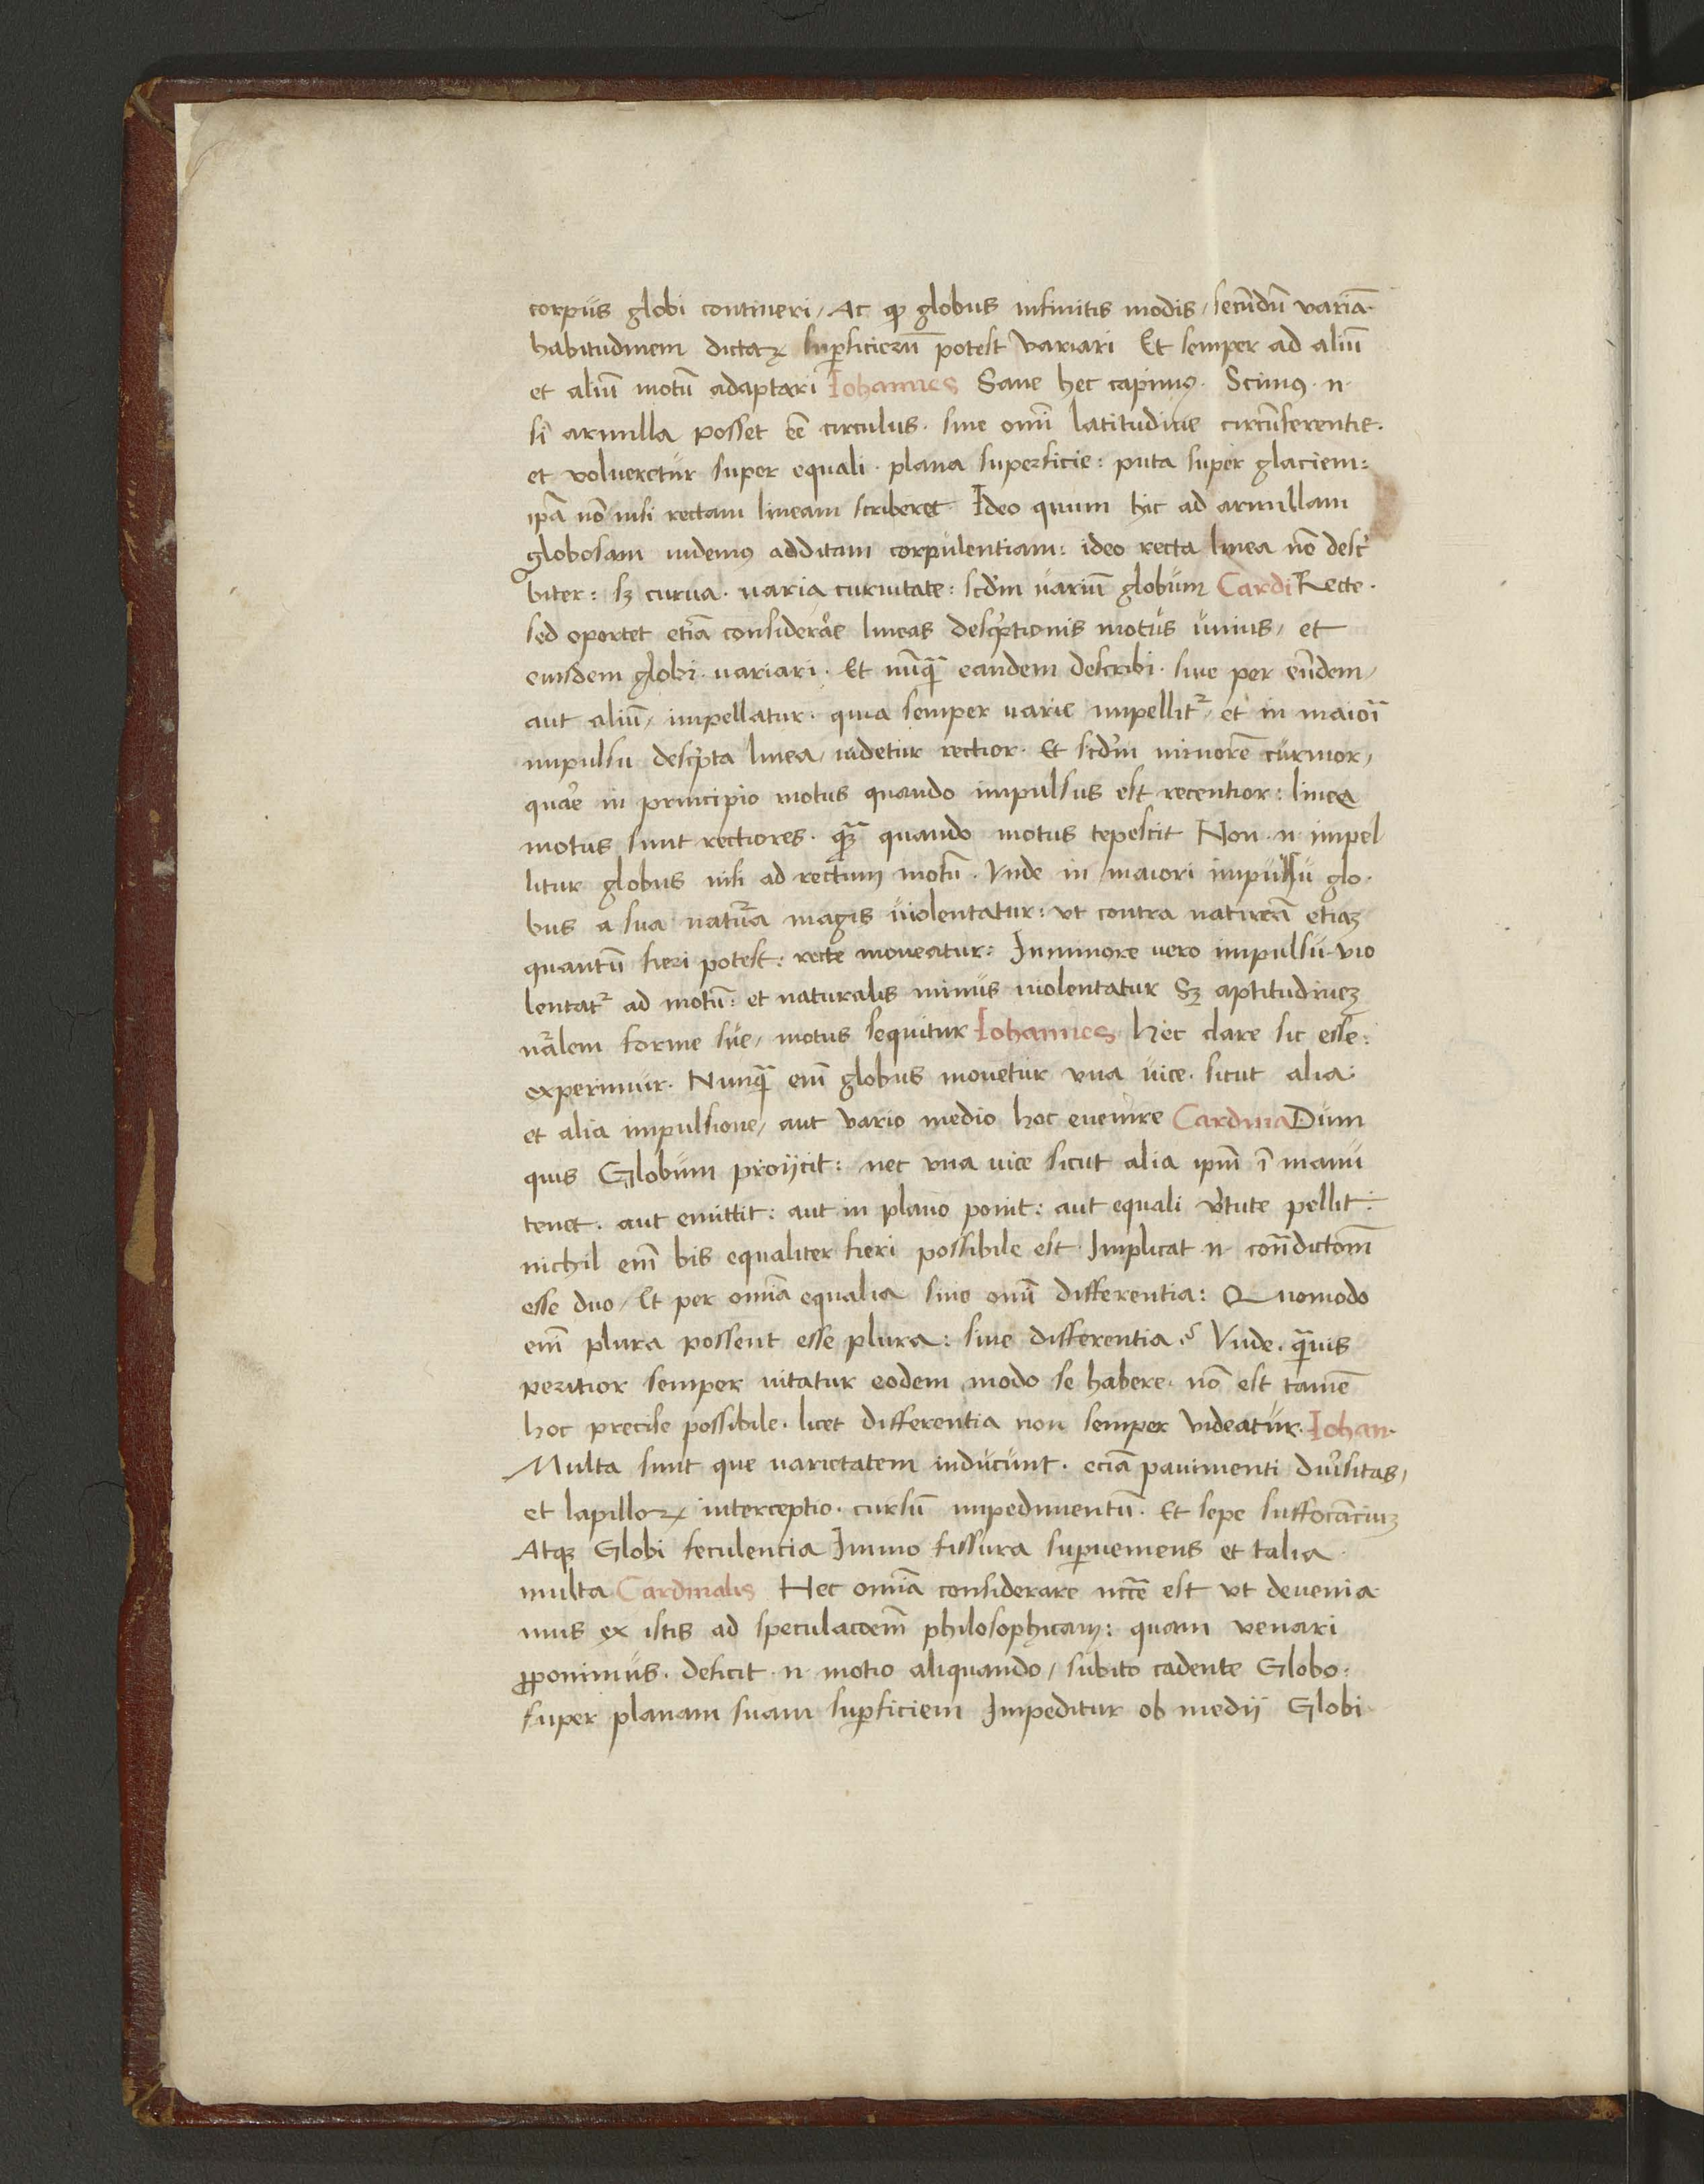 corpus globi contineri / Ac ꝙ globus infinitis modis / secundū variā
habitudinem dictaꝝ suꝑficierū potest variari Et semper ad aliū
et aliū motū adaptari Iohannes Sane hec capimꝰ. Scimꝰ. n.
si armilla posset eē circulus. sine omī latitudine circūferentie.
et volueretur super equali. plana superficie: puta super glaciem:
ipā nō nisi rectam lineam scriberet Ideo quum hic ad armillam
globosam uidemꝰ additam corpulentiam: ideo recta linea nō descͥ
biter: sꝫ curua. varia curuitate: scd'm variū globum Cardi Recte.
sed oportet etiā considerar̄e lineas descͥptionis motus unius / et
eiusdem globi variari. Et nūꝙ̄ eandem describi. siue per eūdem /
aut aliū / impellatur. quia semper varie impellitᷣ / et in maiorī
impulsu descͥpta linea / uidetur rectior. Et scd'm minorē curuior /
quar̄e in principio motus quando impulsus est recentior: linee
motus sunt rectiores. ꝙ̄ quando motus tepescit Non. n. impel
litur globus nisi ad rectum motū. Vnde in maiori impulsu glo.
bus a sua natura magis uiolentatur: vt contra naturā etiaꝫ
quantū fieri potest: recte moueatur: In minore vero impulsu vio
lentatᷣ ad motū: et naturalis minus uiolentatur Sꝫ aptitudineꝫ
nālem forme sue / motus sequitur Iohannes Hec clare sic esse:
experimur. Nunꝙ̄ enī globus mouetur vna uice. sicut alia:
et alia impulsione / aut vario medio hoc euenire Cardina Dum
quis Globum proijcit: nec vna uice sicut alia ipm̄ ī manu
tenet. aut emittit: aut in plano ponit: aut equali v̓tute pellit:
nichil enī bis equaliter fieri possibile est. Implicat. n. cont̄dictōm
esse duo / Et per omnia equalia sine omī differentia: Quomodo
enī plura possent esse plura: sine differentia? Vnde. ꝙ̄uis
peritior semper nitatur eodem modo se habere. nō est tamē
hoc precise possibile. licet differentia non semper videatur. Iohan.
Multa sunt que varietatem inducunt. eciā pauimenti diu̓sitas /
et lapilloꝝ interceptio. cursū impedimentū. Et sepe suffocanciuꝫ
Atqꝫ Globi feculencia Immo fissura suꝑueniens et talia
multa Cardinalis Hec omnia considerare nccē est vt deuenia
mus ex istis ad speculacōem philosophicam: quam venari
ꝓponimus. deficit. n. motio aliquando / subito cadente Globo:
super planam suam suꝑficiem Impeditur ob medii Globi